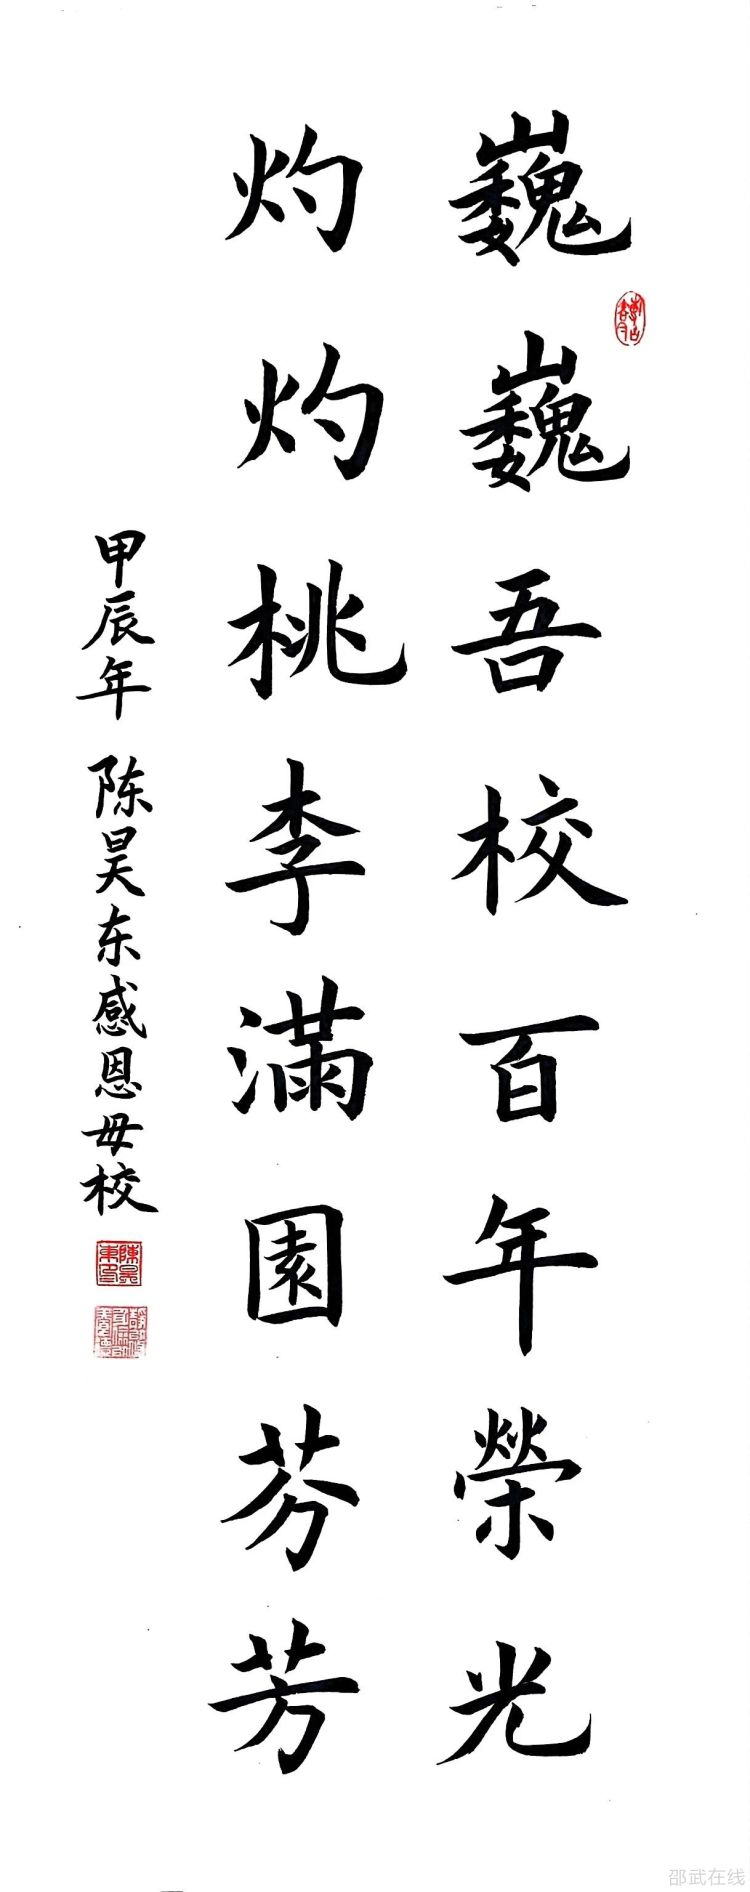 巍巍吾校百年榮光
灼灼桃李滿園芬芳
甲辰年 陈昊东感恩母校
陳昊東印
邵武在线